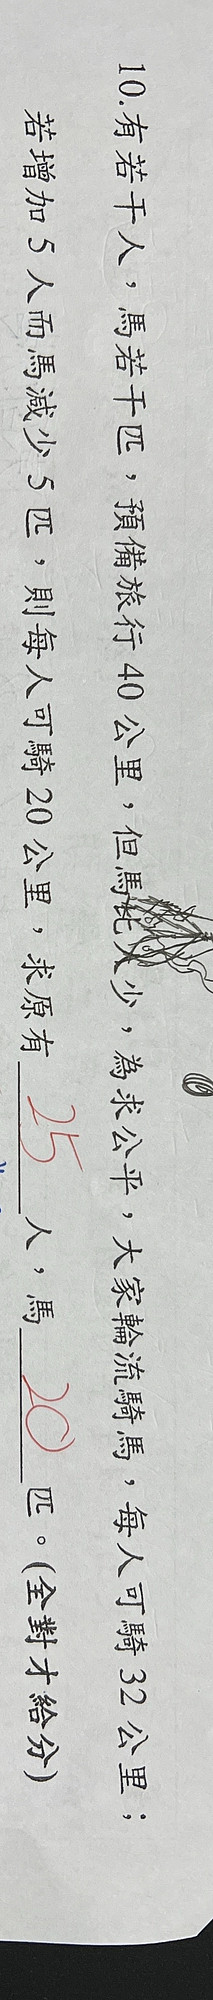 10. 有若干人，馬若干匹，預備旅行 40 公里，但馬比人少，為求公平，大家輪流騎馬，每人可騎 32 公里；
若增加 5 人而馬減少 5 匹，則每人可騎 20 公里，求原有 25 人，馬 20 匹。(全對才給分)